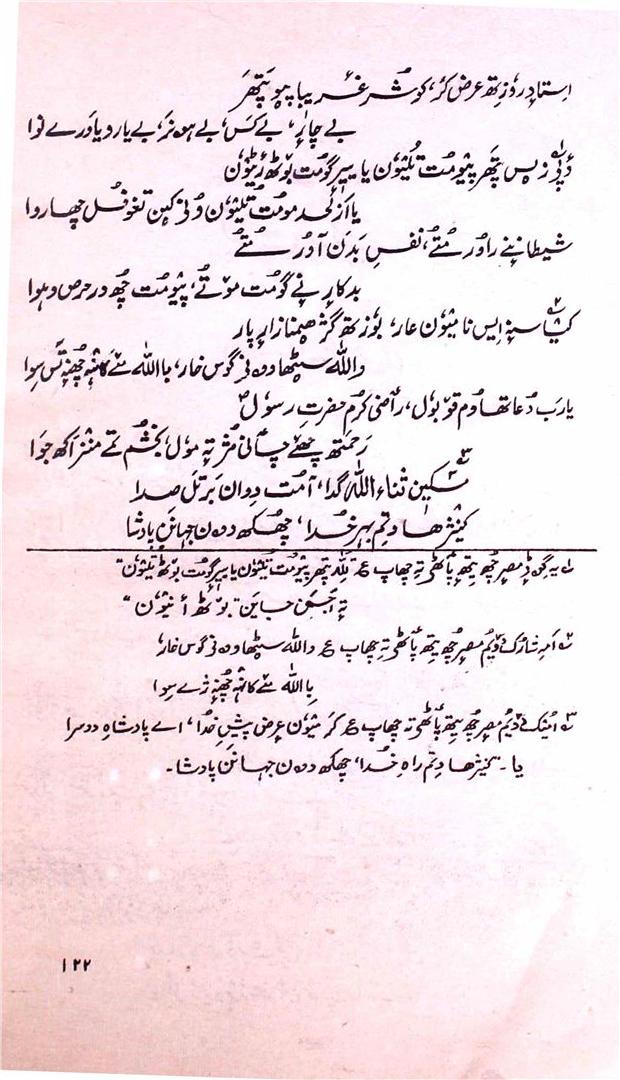 استادٕ روزِتھ عرض کر، کوٚشُر غریبا پیو پَتھَر
بے چارٕ، بے کَس، بے ہونَر، بے یار و یاورے نوا
دٔپۍ زیس پَتھر پیوٚمُت تُلیوٗن یا سیر گومُت بوٚٹھ زیٹوٗن
یا از لحد موٗمُت تُلیوٗن
شیطانَنے راوُر مُتے، نفسِ بَدَن آدُر مُتے
بدکارٕ نے گومُت موٚتے، پیوٚمُت چُھ در حرص و ہوا
نا میوٗن عار، بوزِتھ گژھیم نازار پار
واللہ سیٹھا وہ نۍ گوس خار، با اللہ مےٚ کانٛہہ چُھنہٕ تَس سِوا
یارب دُعا تھاوُم قوبوٗل، رأضی کرُم حضرتِ رسوٗلؐ
رَحمتھ چھےٚ چأنی مُژ تہٕ موٗل، بخشُم تمے منٛز اکھ جَوا
مسکین ثناء اللہ گدا، آمُت دِوان بَر تَل صدا
کینٛژھا دِتم بہرِ خُدا، چُھکھ دۄن جہانَن پادشا
۱؎ یہِ گۄڈ مصرٕ چُھ یِتھٕ پأٹھۍ تہِ چھاپ ؏ لِلّٰہ پتھر پیوٚمُت تُلیوٗن یا سیر گومُت بوٚٹھ تُلیوٗن"
تہٕ اَجَس جایِن "بوٚٹھ أنیوٗن"
۲؎ اَمہِ شارُک دۄیُم مصرٕ چُھ یِتھٕ پأٹھۍ تہِ چھاپ ؏ واللہ سیٹھا وہ نۍ گوس خار،
با اللہ مےٚ کانٛہہ چُھنہٕ ژےٚ سِوا
۳؎ اَمیُک دۄیُم مصرٕ چُھ یِتھٕ پأٹھۍ تہِ چھاپ ؏ کَر میوٗن عرض پیشِ خُدا، اے پادشاہِ دوسرا
یا۔ کینٛژھا دِتم راہِ خُدا، چُھکھ دۄن جہانَن پادشا۔
۱۲۲